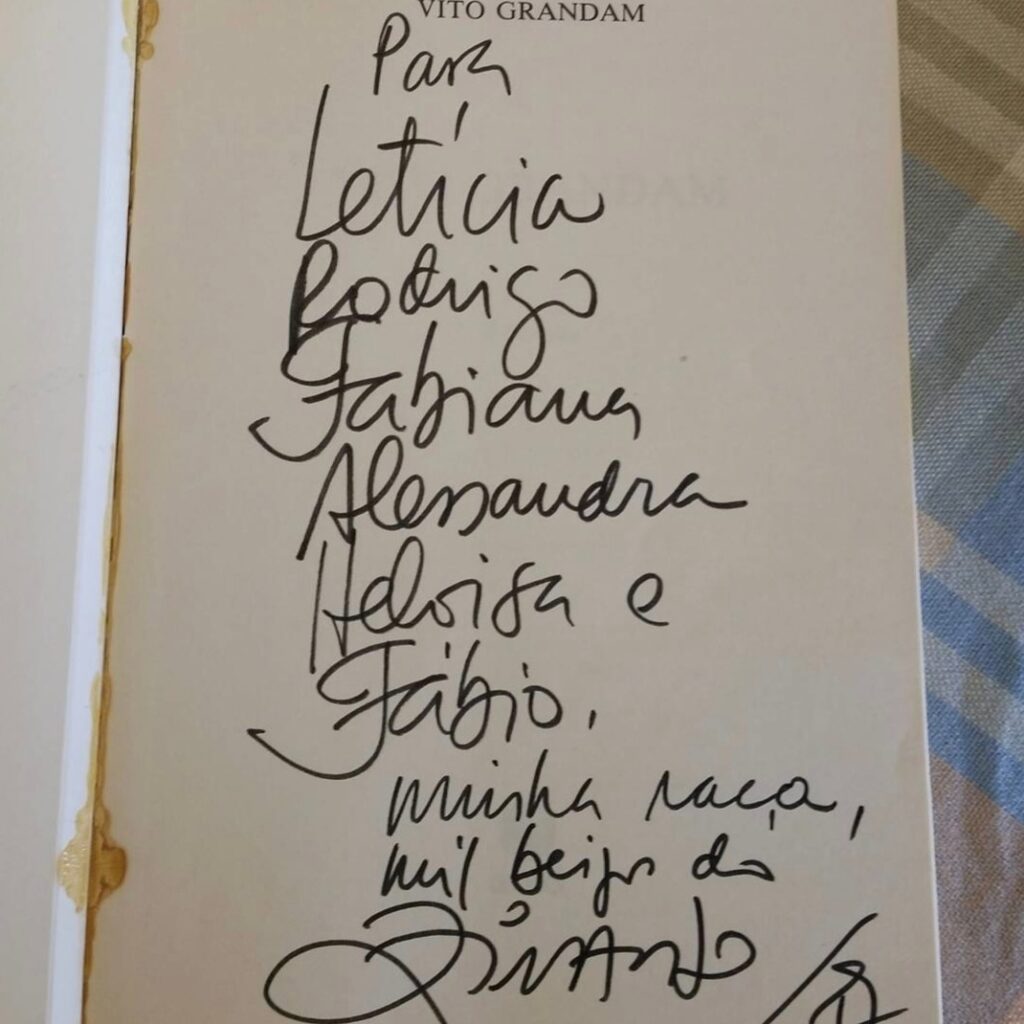 VITO GRANDAM
Para
Letícia
Rodrigo
Fabiana
Alessandra
Heloisa e
Fábio,
minha raça,
mil beijos do
Ziraldo